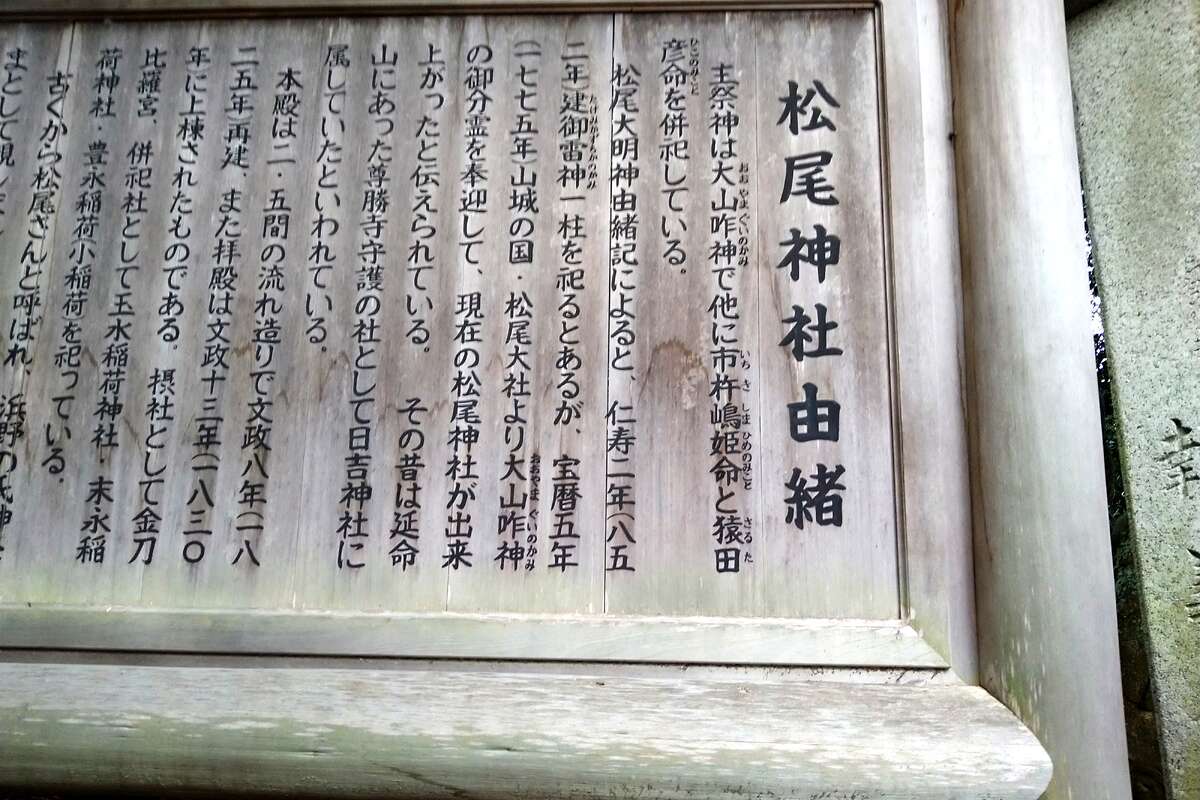 松尾神社由緒
主祭神は大山咋神で他に市杵嶋姫命と猿田
彦命を併祀している。
松尾大明神由緒記によると、仁寿二年(八五
二年)建御雷神一柱を祀るとあるが、宝暦五年
(一七七五年)山城の国・松尾大社より大山咋神
の御分霊を奉迎して、現在の松尾神社が出来
上がったと伝えられている。 その昔は延命
山にあった尊勝寺守護の社として日吉神社に
属していたといわれている。
本殿は二・五間の流れ造りで文政八年(一八
二五年)再建、また拝殿は文政十三年(一八三〇
年に上棟されたものである。 摂社として金刀
比羅宮、併祀社として玉水稲荷神社・末永稲
荷神社・豊永稲荷(小稲荷)を祀っている。
古くから松尾さんと呼ばれ、浜野の氏神